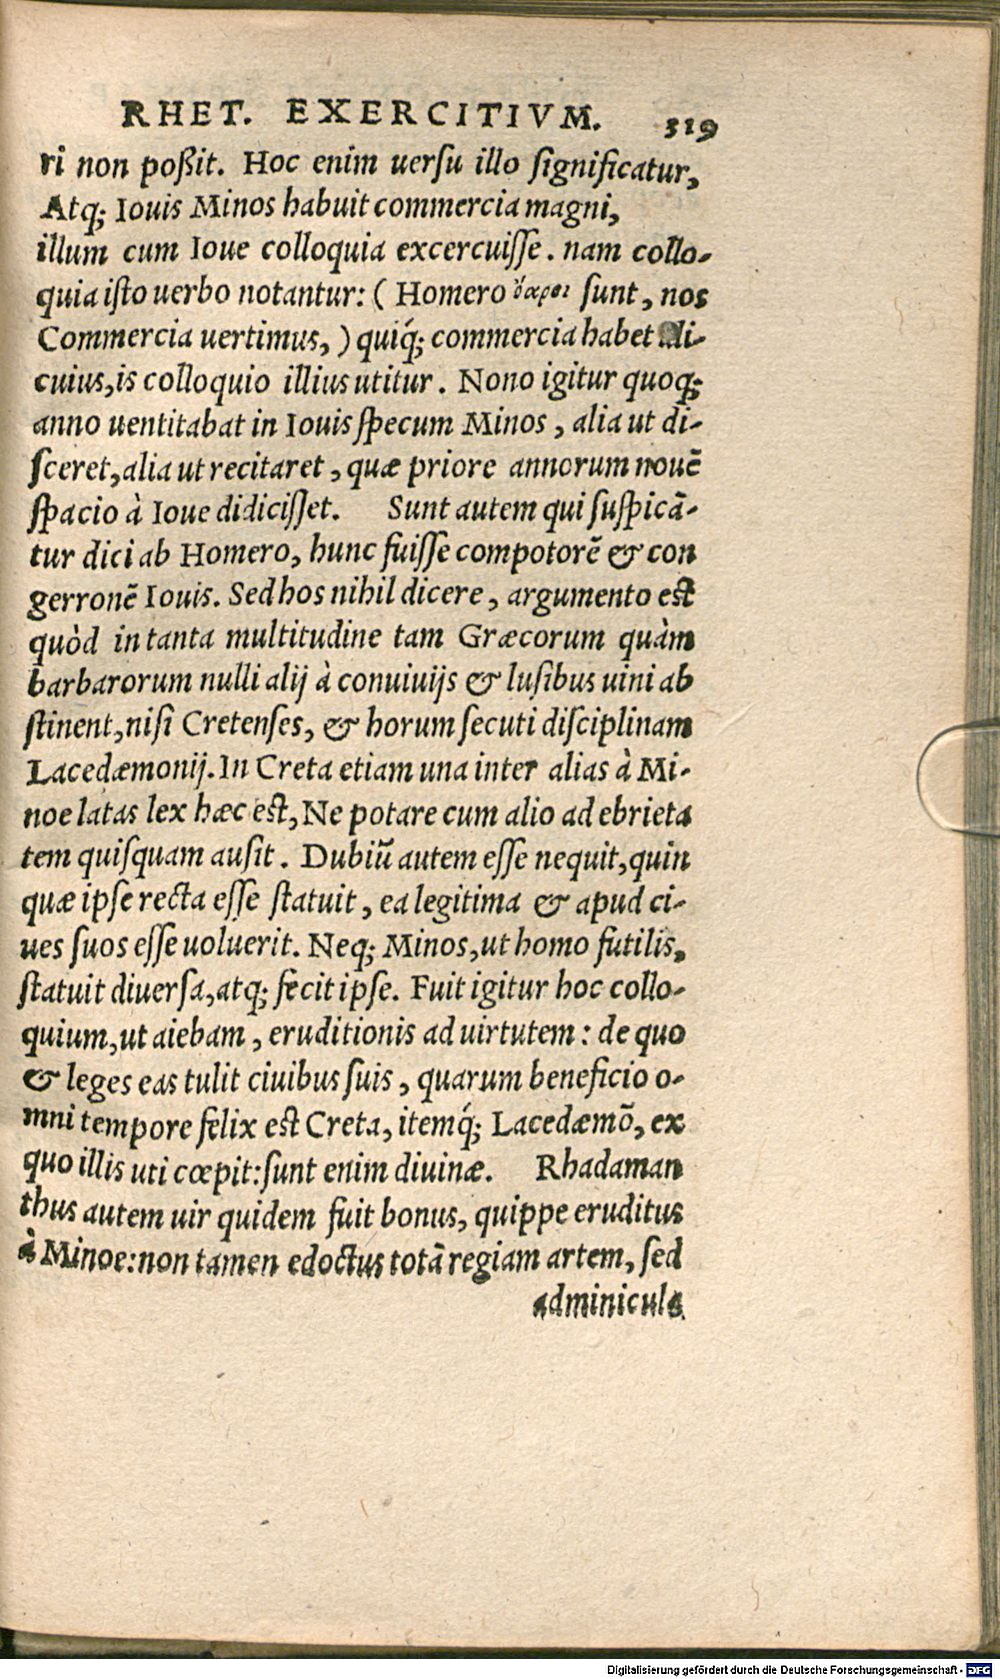 RHET. EXERCITIVM. 319
ri non poßit. Hoc enim uersu illo significatur,
Atq; Iouis Minos habuit commercia magni,
illum cum Ioue colloquia excercuisse. nam collo-
quia isto uerbo notantur: (Homero ὄαροι sunt, nos
Commercia uertimus,) quiq́; commercia habet ali-
cuius, is colloquio illius utitur. Nono igitur quoq;
anno uentitabat in Iouis specum Minos, alia ut di-
sceret, alia ut recitaret, quæ priore annorum nouẽ
spacio à Ioue didicisset. Sunt autem qui suspicã-
tur dici ab Homero, hunc fuisse compotorẽ & con
gerronẽ Iouis. Sed hos nihil dicere, argumento est
quòd in tanta multitudine tam Græcorum quàm
barbarorum nulli alij à conuiuijs & lusibus uini ab
stinent, nisi Cretenses, & horum secuti disciplinam
Lacedæmonij. In Creta etiam una inter alias à Mi-
noe latas lex hæc est, Ne potare cum alio ad ebrieta
tem quisquam ausit. Dubiũ autem esse nequit, quin
quæ ipse recta esse statuit, ea legitima & apud ci-
ues suos esse uoluerit. Neq; Minos, ut homo futilis,
statuit diuersa, atq; fecit ipse. Fuit igitur hoc collo-
quium, ut aiebam, eruditionis ad uirtutem: de quo
& leges eas tulit ciuibus suis, quarum beneficio o-
mni tempore felix est Creta, itemq́; Lacedæmõ, ex
quo illis uti cœpit: sunt enim diuinæ. Rhadaman
thus autem uir quidem fuit bonus, quippe eruditus
à Minoe: non tamen edoctus totã regiam artem, sed
adminicula
Digitalisierung gefördert durch die Deutsche Forschungsgemeinschaft - DFG